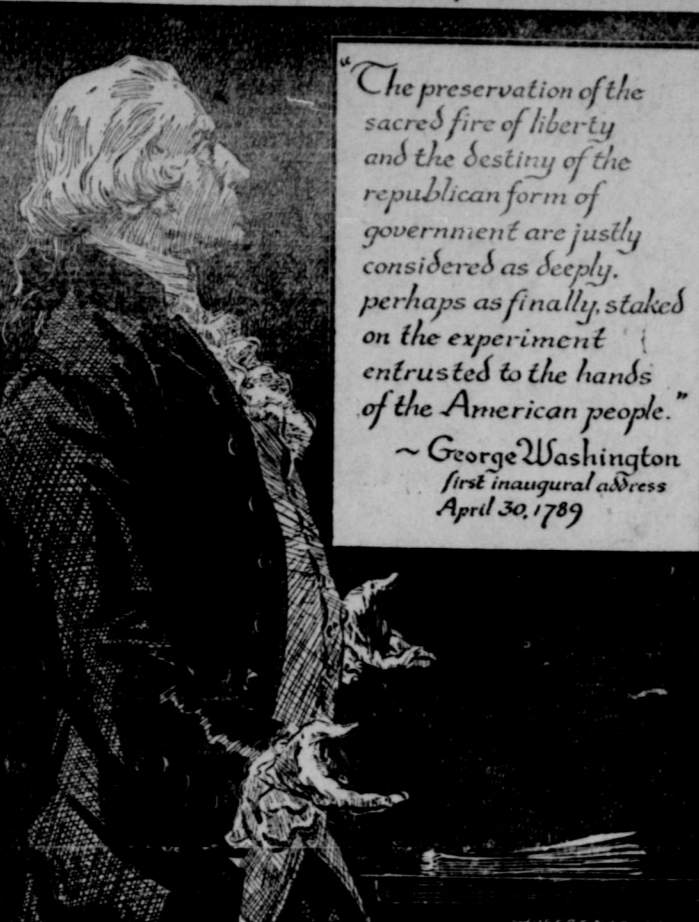 “The preservation of the
sacred fire of liberty
and the destiny of the
republican form of
government are justly
considered as deeply,
perhaps as finally, staked
on the experiment
entrusted to the hands
of the American people.”
~ George Washington
first inaugural address
April 30, 1789